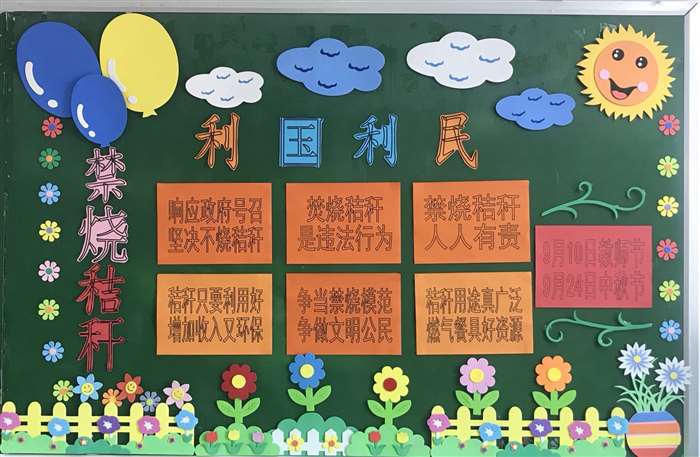 利国利民
禁烧秸秆
响应政府号召
坚决不烧秸秆
焚烧秸秆
是违法行为
禁烧秸秆
人人有责
9月10日教师节
9月24日中秋节
秸秆只要利用好
增加收入又环保
争当禁烧模范
争做文明公民
秸秆用途真广泛
燃气餐具好资源